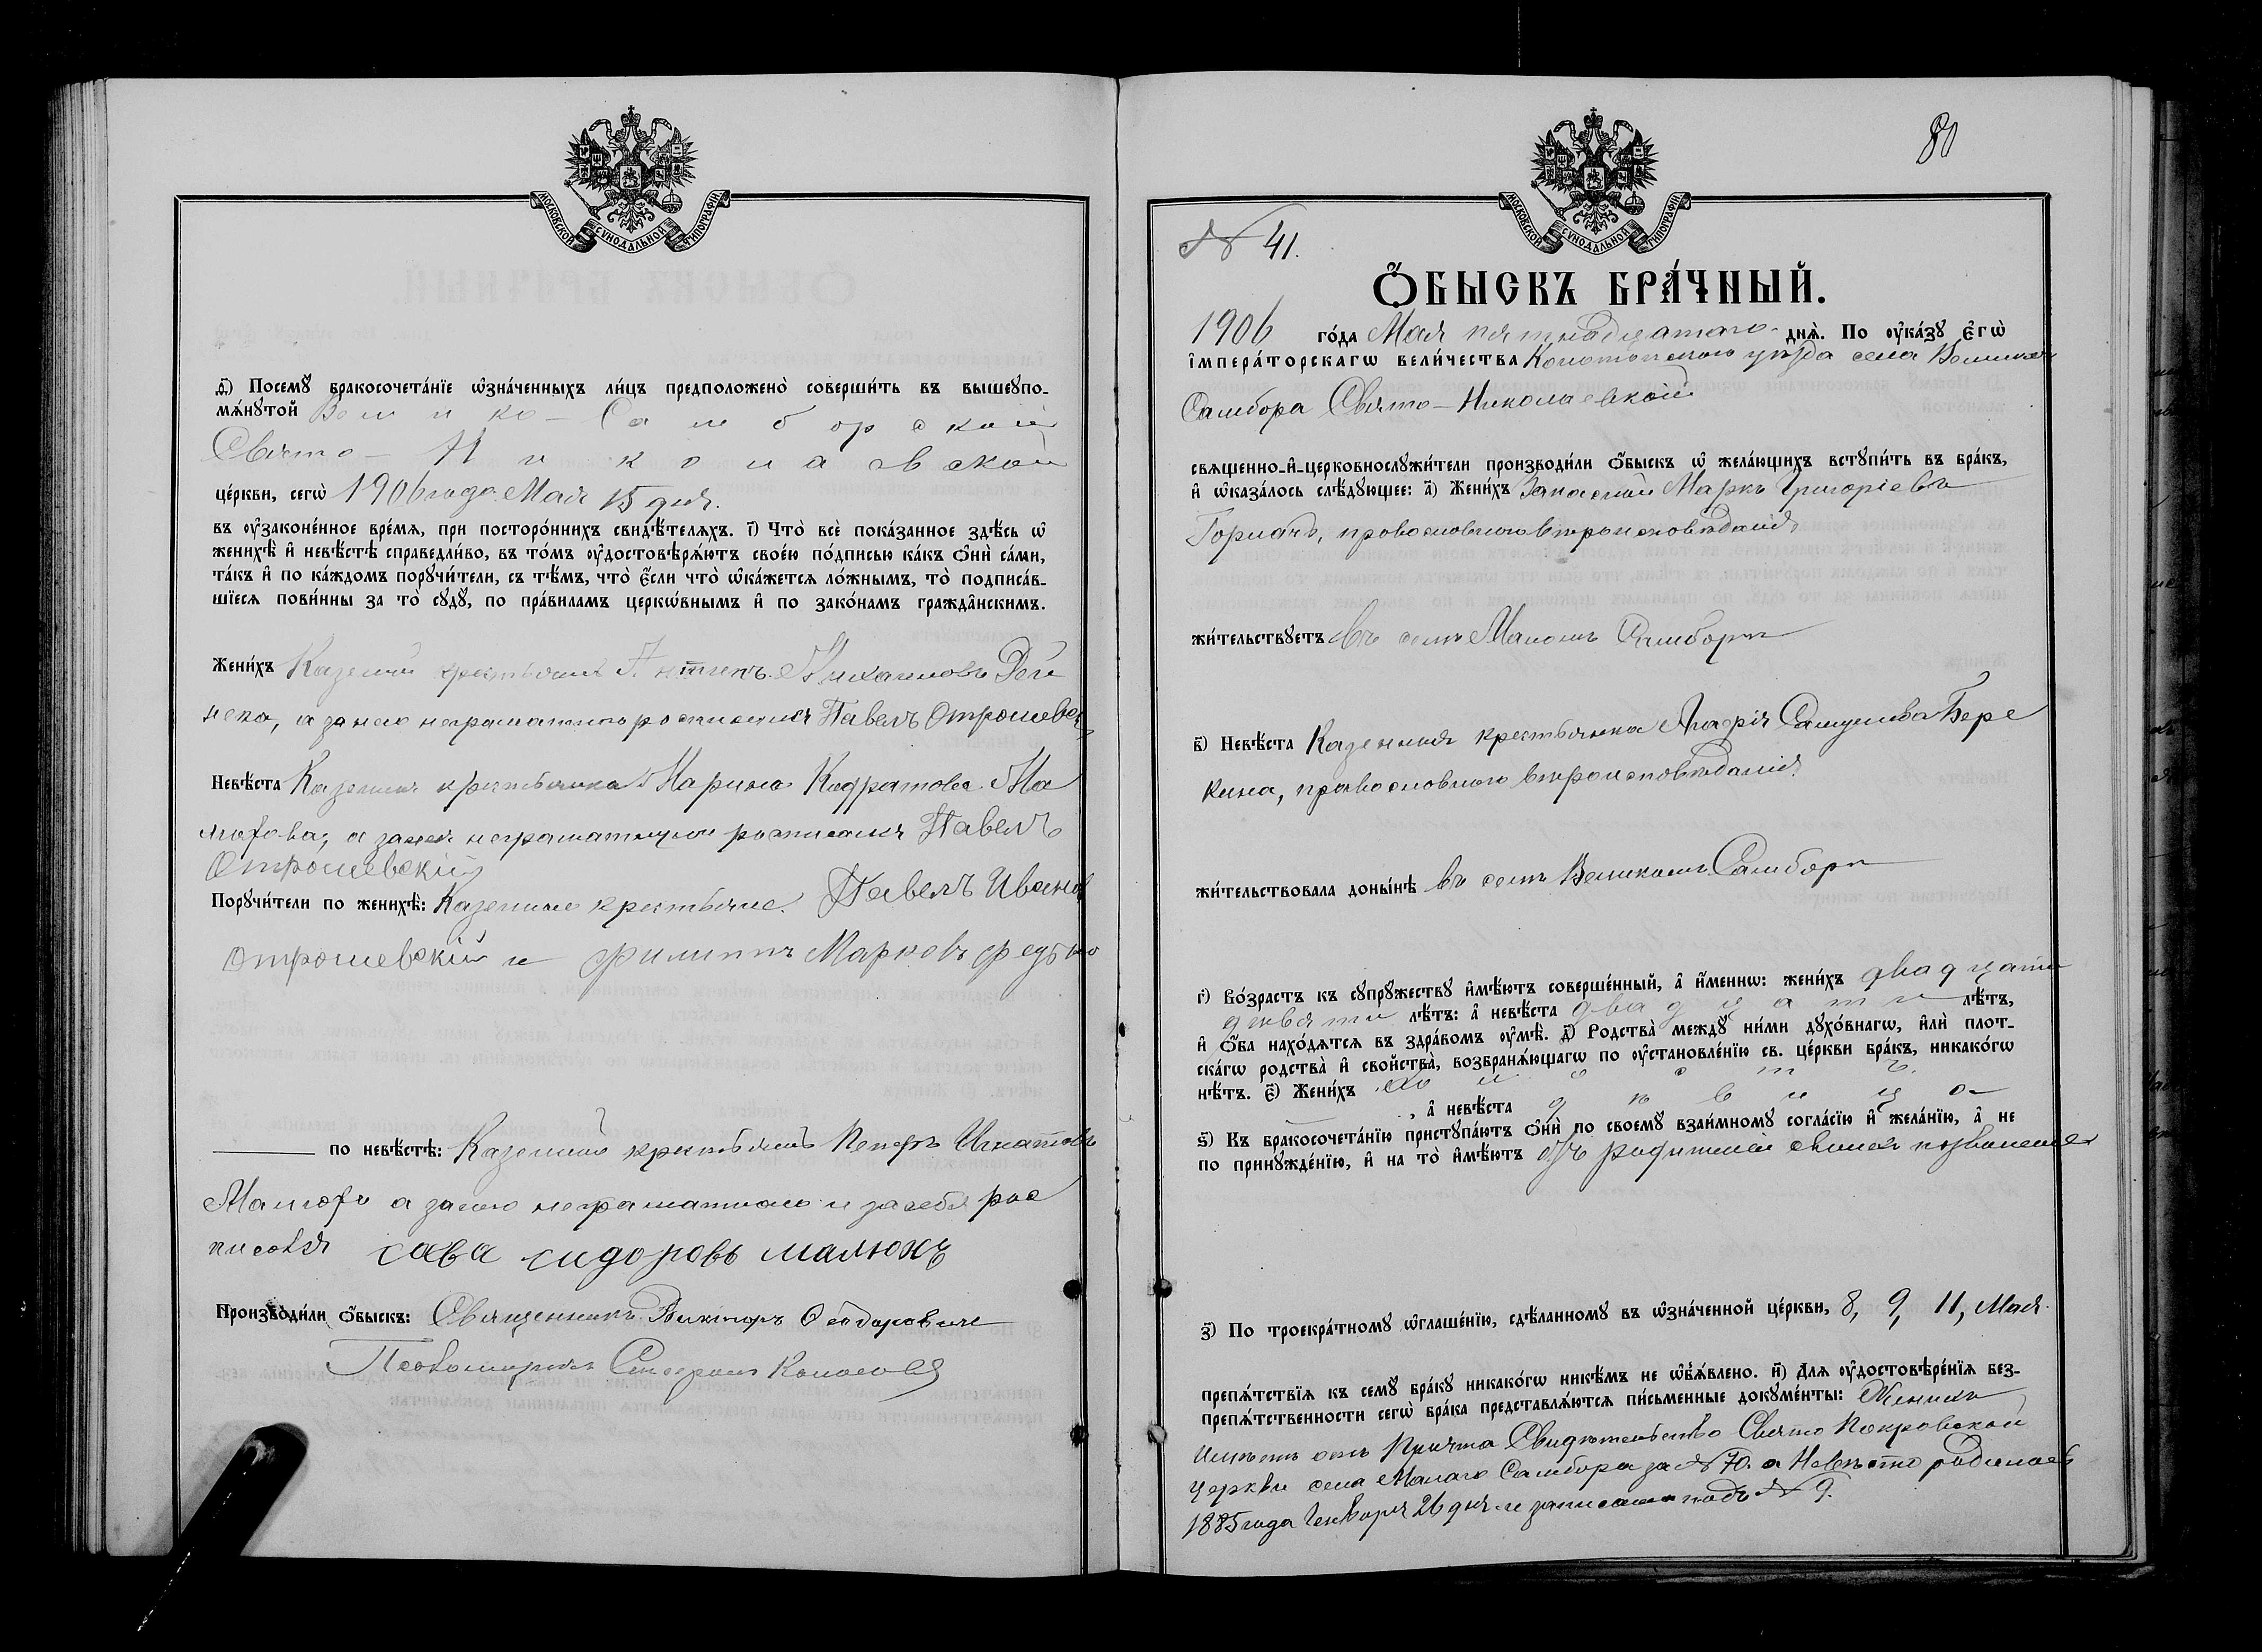 МОСКОВСКОЙ СѴНОДАЛЬНОЙ ТИПОГРАФІИ
ѳ҃) Посемꙋ бракосочета́нїе ѡ҆зна́ченныхъ ли́цъ предположено̀ соверши́ть въ вышеꙋпо-
мѧ́нꙋтой Велико-Самборской
Свято-Николаевской
це́ркви, сегѡ̀ 1906 года Мая 15 дня.
въ ᲂу҆законе́нное вре́мѧ, при посторо́ннихъ свидѣ́телѧхъ. і҃) Что̀ всѐ пока́занное здѣ́сь ѡ҆
женихѣ̀ и҆ невѣ́стѣ справедли́во, въ то́мъ ᲂу҆достовѣрѧ́ютъ свое́ю по́дписью ка́къ ѻ҆нѝ са́ми,
та́къ и҆ по ка́ждомъ порꙋчи́тели, съ тѣ́мъ, что̀ є҆́сли что̀ ѡ҆ка́жетсѧ ло́жнымъ, то̀ подписа́в-
шїесѧ пови́нны за то̀ сꙋдꙋ̀, по пра́виламъ церкѡ́внымъ и҆ по зако́намъ гражда̂нскимъ.
Жени́хъ Казенный крестьянинъ Антипъ Михаиловъ Дей
нека, а за него неграматнаго росписился Павелъ Отрошевскі
Невѣ́ста Казенная крестьянка Марина Кодратова Ма
люхова, а за нея неграматную росписался Павелъ
Отрошевскій
Порꙋчи́тели по женихѣ̀: Казенные крестьяне Павелъ Ивановъ
Отрошевскій и Филиппъ Марковъ Федько
по невѣ́стѣ: Казенный крестьянинъ Петръ Игнатовъ
Малюхъ а за него неграматнаго и за себя рос
писолся сава сидоровъ малюхъ
Произво́дили ѻ҆́быскъ: Священникъ Викторъ Ѳеодоровичъ
Псаломщикъ
80
МОСКОВСКОЙ СѴНОДАЛЬНОЙ ТИПОГРАФІИ
№ 41.
Ѻ҆́БЫСКЪ БРА́ЧНЫЙ.
1906 го́да Мая пятнадцатаго днѧ̀. По ᲂу҆ка́зꙋ є҆гѡ̀
і҆мпера́торскагѡ вели́чества Конотопскаго уѣзда села Великаго
Самбора Свято-Николаевской
свѧщенно-и҆-церковнослꙋжи́тели производи́ли ѻ҆́быскъ ѡ҆ жела́ющихъ встꙋпи́ть въ бра́къ,
и҆ ѡ҆каза́лось слѣ́дꙋющее: а҃) Жени́хъ Запасный Маркъ Григоріевъ
Горпачъ, провославного вѣроисповѣданія
жи́тельствꙋетъ въ селѣ Маломъ Самборѣ
в҃) Невѣ́ста Казенная крестьянка Агафія Самуилова Бере
кина, провословного вѣроисповѣданія.
жи́тельствовала доны́нѣ въ селѣ Великомъ Самборѣ
г҃) Во́зрастъ къ сꙋпрꙋ́жествꙋ и҆мѣ́ютъ соверше́нный, а҆ и҆́меннѡ: жени́хъ двадцати
девяти лѣ́тъ: а҆ невѣ́ста двадцати лѣ́тъ,
и҆ ѻ҆́ба нахо́дѧтсѧ въ здра́вомъ ᲂу҆мѣ̀. д҃) Родства̀ междꙋ̀ ни́ми дꙋхо́внагѡ, и҆лѝ плот-
ска́гѡ родства̀ и҆ сво́йства, возбранѧ́ющагѡ по ᲂу҆становле́нїю св. це́ркви бра́къ, никако́гѡ
нѣ́тъ. є҃) Жени́хъ холостъ
, а҆ невѣ́ста дѣвица
ѕ҃) Къ бракосочета́нїю пристꙋпа́ютъ ѻ҆нѝ по своемꙋ̀ взаи́мномꙋ согла́сїю и҆ жела́нїю, а҆ не
по принꙋжде́нїю, и҆ на то̀ и҆мѣ́ютъ отъ родителей своихъ позволеніе
з҃) По троекра́тномꙋ ѡ҆глаше́нїю, сдѣ́ланномꙋ въ ѡ҆зна́ченной це́ркви, 8, 9, 11, Мая.
препѧ́тствїѧ къ семꙋ̀ бра́кꙋ никако́гѡ никѣ́мъ не ѡ҆б̾ѧ́влено. и҃) Длѧ ᲂу҆достовѣре́нїѧ без-
препѧ́тственности сегѡ̀ бра́ка представлѧ́ютсѧ пи́сьменные докꙋме́нты: Женихъ
имѣетъ отъ Причта Свидѣтельство Свято Покровской
церкви села Малаго Самбора за № 70. а Невѣста родилась
1885 года Генворя 26 дня и записана подъ № 9.